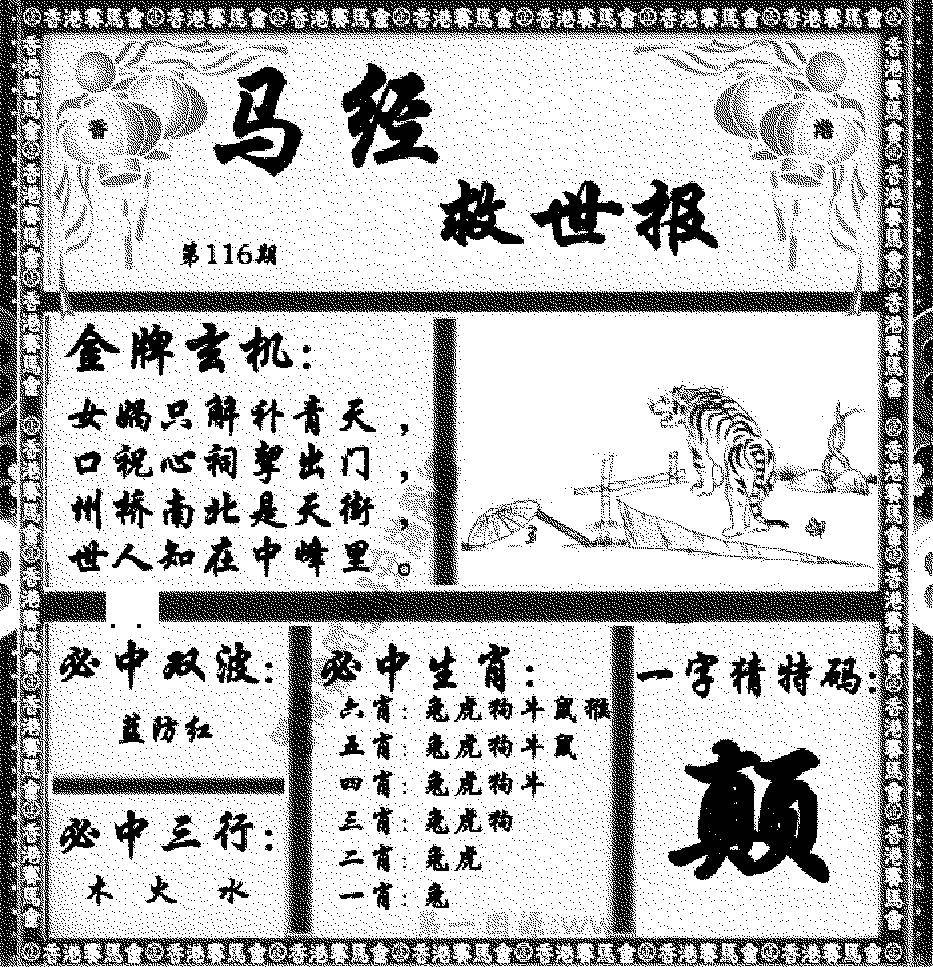 香港賽馬會香港賽馬會香港賽馬會香港賽馬會香港賽馬會香港賽馬會香港賽馬會
香
港
马经
救世报
第116期
金牌玄机:
女娲只解补青天,
口祝心祠挈出门,
州桥南北是天街,
世人知在中峰里。
必中双波:
蓝防红
必中三行:
木 火 水
必中生肖:
六肖: 兔虎狗牛鼠猴
五肖: 兔虎狗牛鼠
四肖: 兔虎狗牛
三肖: 兔虎狗
二肖: 兔虎
一肖: 兔
一字猜特码:
颠
香港賽馬會香港賽馬會香港賽馬會香港賽馬會香港賽馬會香港賽馬會香港賽馬會